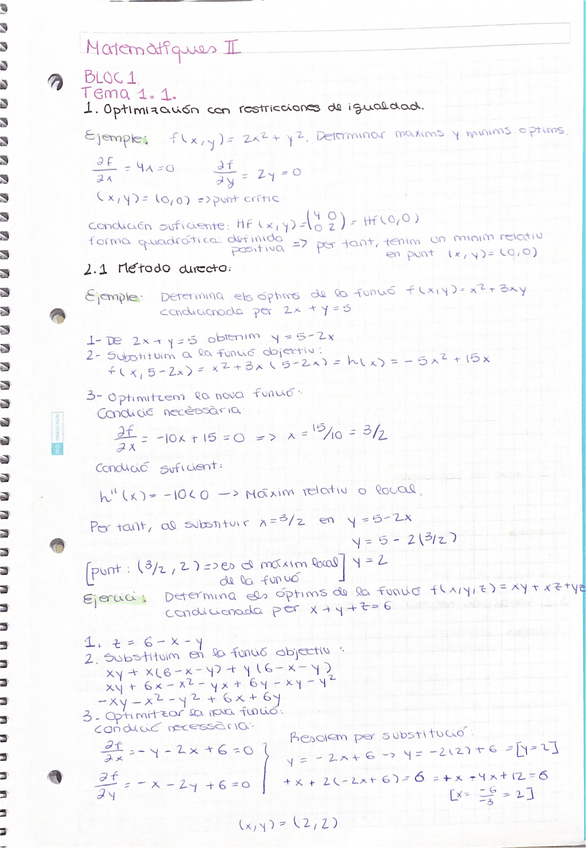 Matemàtiques II
BLOC 1
Tema 1.1.
1. Optimización con restricciones de igualdad.
Ejemple: f(x,y) = 2x² + y². Determinar maxims y minims optims.
∂f/∂x = 4x = 0   ∂f/∂y = 2y = 0
(x,y) = (0,0) => punt crític
condición suficiente: Hf(x,y) = (4 0 / 0 2) = Hf(0,0)
forma quadràtica: definida positiva => per tant, tenim un minim relatiu en punt (x,y) = (0,0)
2.1 Método directo:
Ejemple: Determina els óptims de la funció f(x,y) = x² + 3xy
condicionada per 2x + y = 5
1- De 2x + y = 5 obtenim y = 5 - 2x
2- Substituim a la funció objectiu:
f(x, 5-2x) = x² + 3x(5-2x) = h(x) = -5x² + 15x
3- Optimitzem la nova funció:
Condició necèssària
∂f/∂x = -10x + 15 = 0 => x = 15/10 = 3/2
Condició suficient:
h''(x) = -10 < 0 -> Màxim relatiu o local.
Per tant, al substituir x = 3/2 en y = 5 - 2x
y = 5 - 2(3/2)
[punt: (3/2, 2) => es el màxim local de la funció] y = 2
Ejercici: Determina els óptims de la funció f(x,y,z) = xy + xz + yz
condicionada per x + y + z = 6
1. z = 6 - x - y
2. Substituim en la funció objectiu:
xy + x(6-x-y) + y(6-x-y)
xy + 6x - x² - yx + 6y - xy - y²
-xy - x² - y² + 6x + 6y
3- Optimitzar la nova funció:
condició necessària:
∂f/∂x = -y - 2x + 6 = 0
∂f/∂y = -x - 2y + 6 = 0
Resolem per substitució:
y = -2x + 6 -> y = -2(2) + 6 = [y = 2]
+x + 2(-2x+6) = 6 = +x - 4x + 12 = 6
[x = -6/-3 = 2]
(x,y) = (2,2)